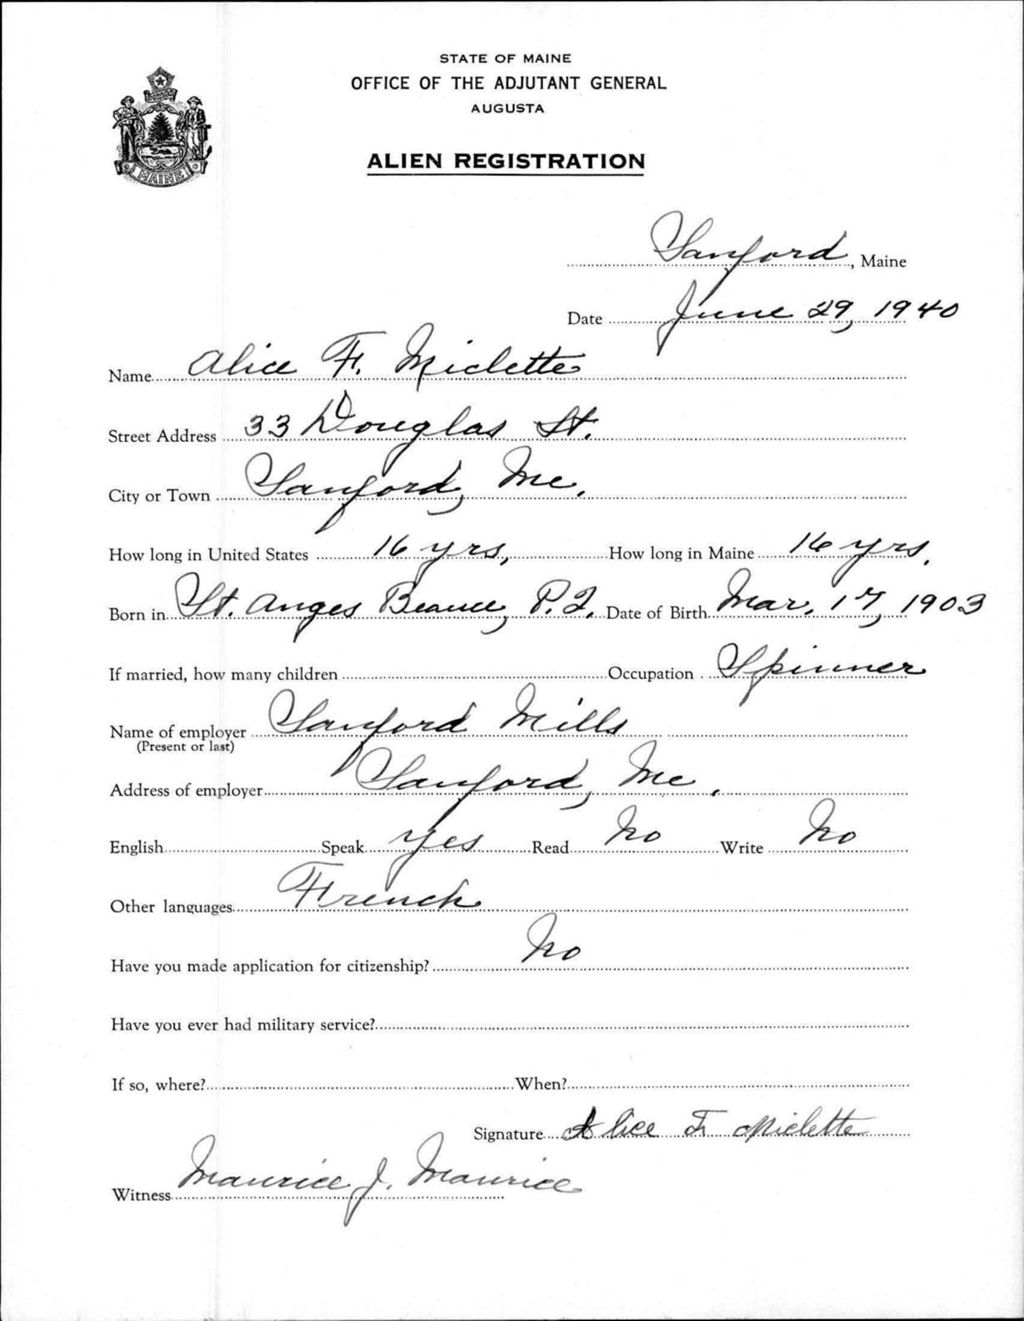 STATE OF MAINE
OFFICE OF THE ADJUTANT GENERAL
AUGUSTA
ALIEN REGISTRATION
MAINE
Sanford, Maine
Date June 29, 1940
Name Alice F. Miclette
Street Address 33 Douglas St.
City or Town Sanford, Me.
How long in United States 16 yrs, How long in Maine 16 yrs.
Born in St. Anges Beauce, P.Q. Date of Birth Mar. 17, 1903
If married, how many children Occupation Spinner
Name of employer Sanford Mills
(Present or last)
Address of employer Sanford, Me.
English Speak yes Read No Write No
Other languages French
Have you made application for citizenship? No
Have you ever had military service?
If so, where? When?
Signature Alice F. Miclette
Witness Maurice J. Maurice